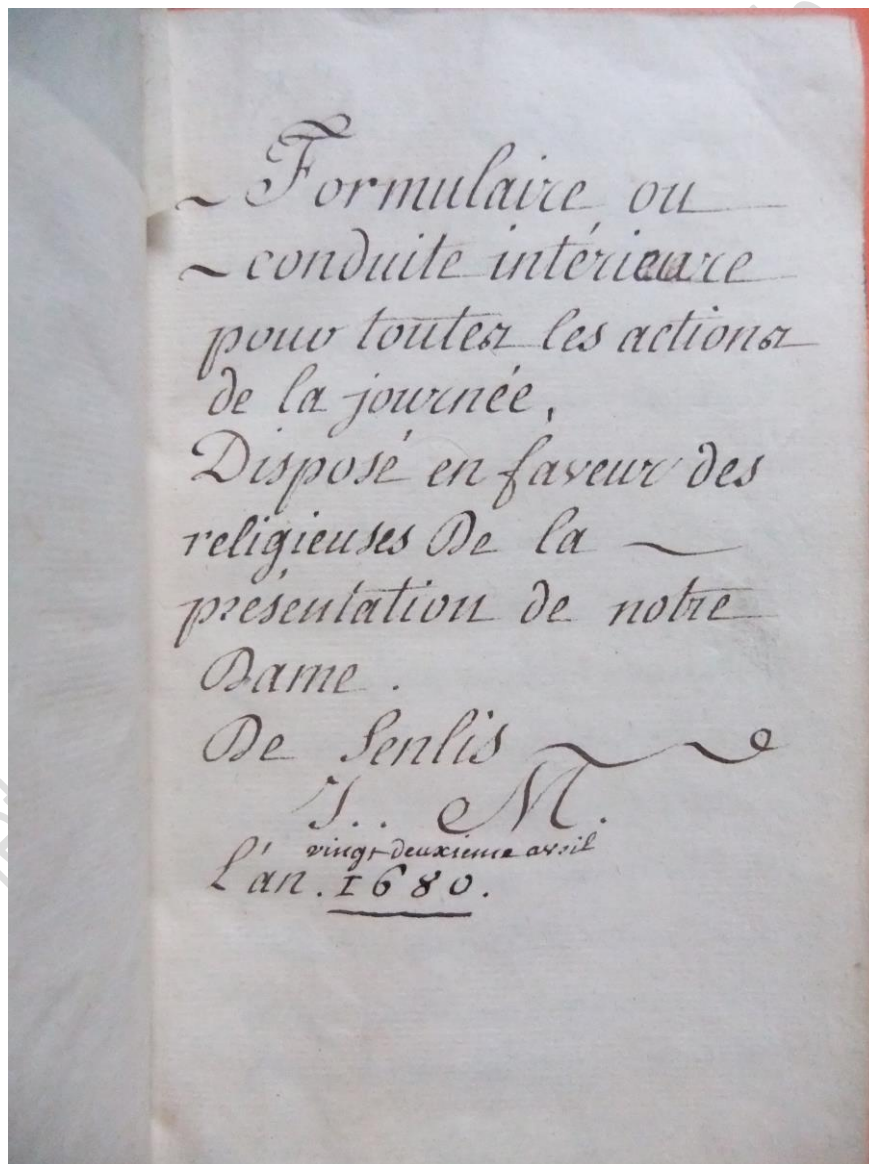 Formulaire ou
conduite intérieure
pour toutes les actions
de la journée,
Disposé en faveur des
religieuses De la
présentation de notre
Dame.
De Senlis
J.. M.
vingt deuxieme avril
L'an. 1680.